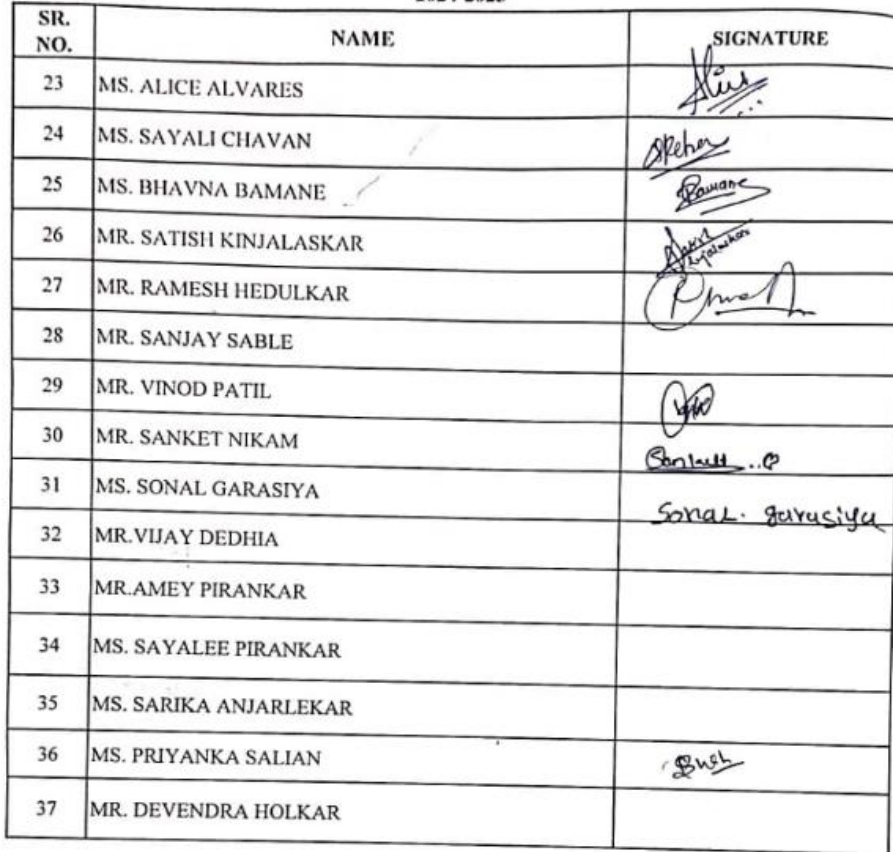 SR. NO. NAME SIGNATURE
23 MS. ALICE ALVARES
24 MS. SAYALI CHAVAN
25 MS. BHAVNA BAMANE Bamane
26 MR. SATISH KINJALASKAR
27 MR. RAMESH HEDULKAR
28 MR. SANJAY SABLE
29 MR. VINOD PATIL
30 MR. SANKET NIKAM
31 MS. SONAL GARASIYA Sonal. garasiya
32 MR.VIJAY DEDHIA
33 MR.AMEY PIRANKAR
34 MS. SAYALEE PIRANKAR
35 MS. SARIKA ANJARLEKAR
36 MS. PRIYANKA SALIAN
37 MR. DEVENDRA HOLKAR